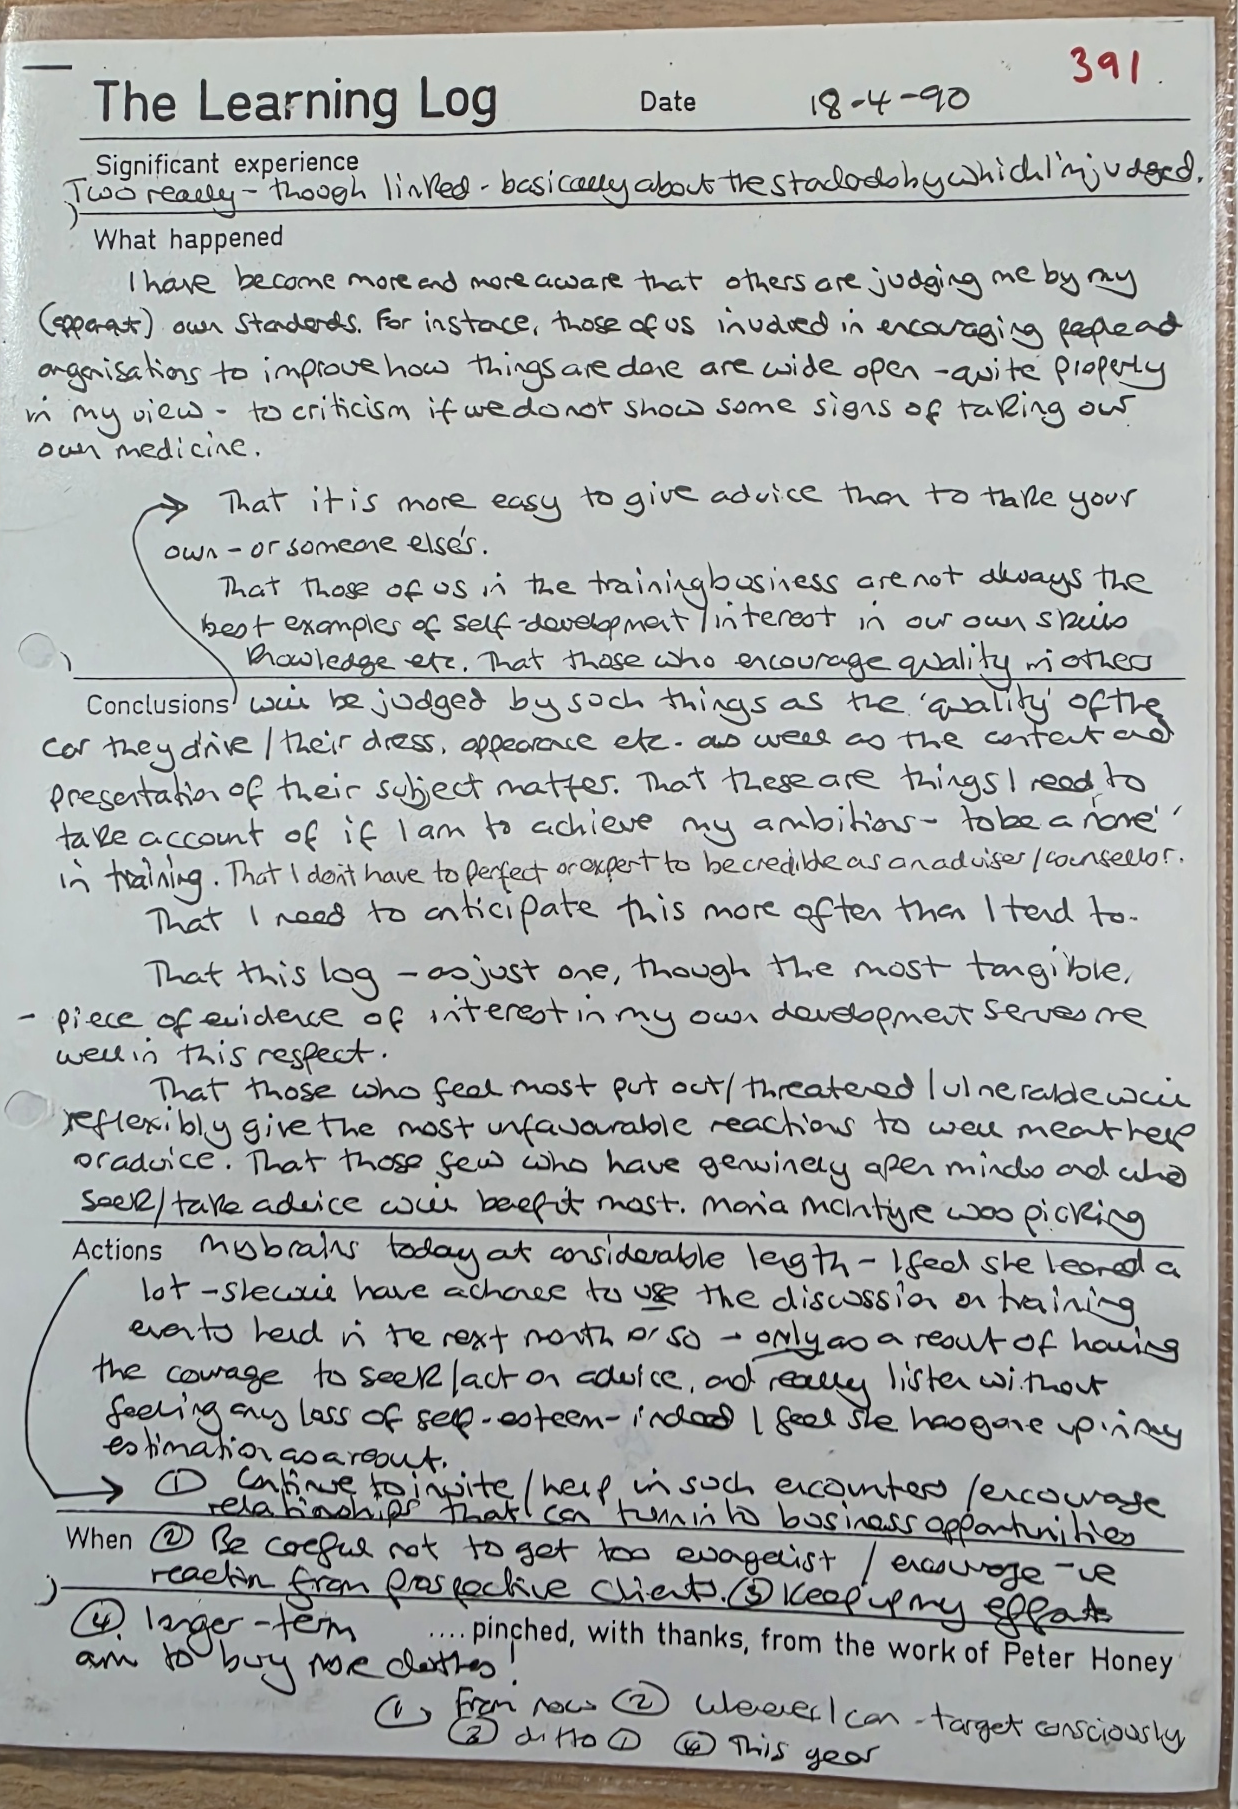 391.
The Learning Log Date 18-4-90
Significant experience
Two really - though linked - basically about the stadards by which I'm judged.
What happened
I have become more and more aware that others are judging me by my
(apparent) own standards. For instance, those of us involved in encouraging people and
organisations to improve how things are done are wide open - quite properly
in my view - to criticism if we do not show some signs of taking our
own medicine.
That it is more easy to give advice than to take your
own - or someone else's.
That those of us in the training business are not always the
best examples of self-development / interest in our own skills
knowledge etc. That those who encourage quality in others
Conclusions will be judged by such things as the 'quality' of the
car they drive / their dress, appearance etc. as well as the content and
presentation of their subject matter. That these are things I need to
take account of if I am to achieve my ambitions - to be a 'name'
in training. That I don't have to perfect or expert to be credible as an adviser / counsellor.
That I need to anticipate this more often than I tend to.
That this log - as just one, though the most tangible,
- piece of evidence of interest in my own development serves me
well in this respect.
That those who feel most put out / threatened / vulnerable will
reflexibly give the most unfavourable reactions to well meant help
or advice. That those few who have genuinely open minds and who
seek / take advice will benefit most. Maria McIntyre was picking
Actions my brains today at considerable length - I feel she learned a
lot - she will have a chance to use the discussion on training
events held in the next month or so - only as a result of having
the courage to seek / act on advice, and really listen without
feeling any loss of self-esteem - indeed I feel she has gone up in my
estimation as a result.
① Continue to invite / help in such encounters / encourage
relationships that can turn into business opportunities
When ② Be careful not to get too evangelist / encourage -ve
reaction from prospective clients. ③ Keep up my efforts
④ longer-term .... pinched, with thanks, from the work of Peter Honey
aim to buy more clothes!
① From now ② Wherever I can - target consciously
③ ditto ① ④ This year